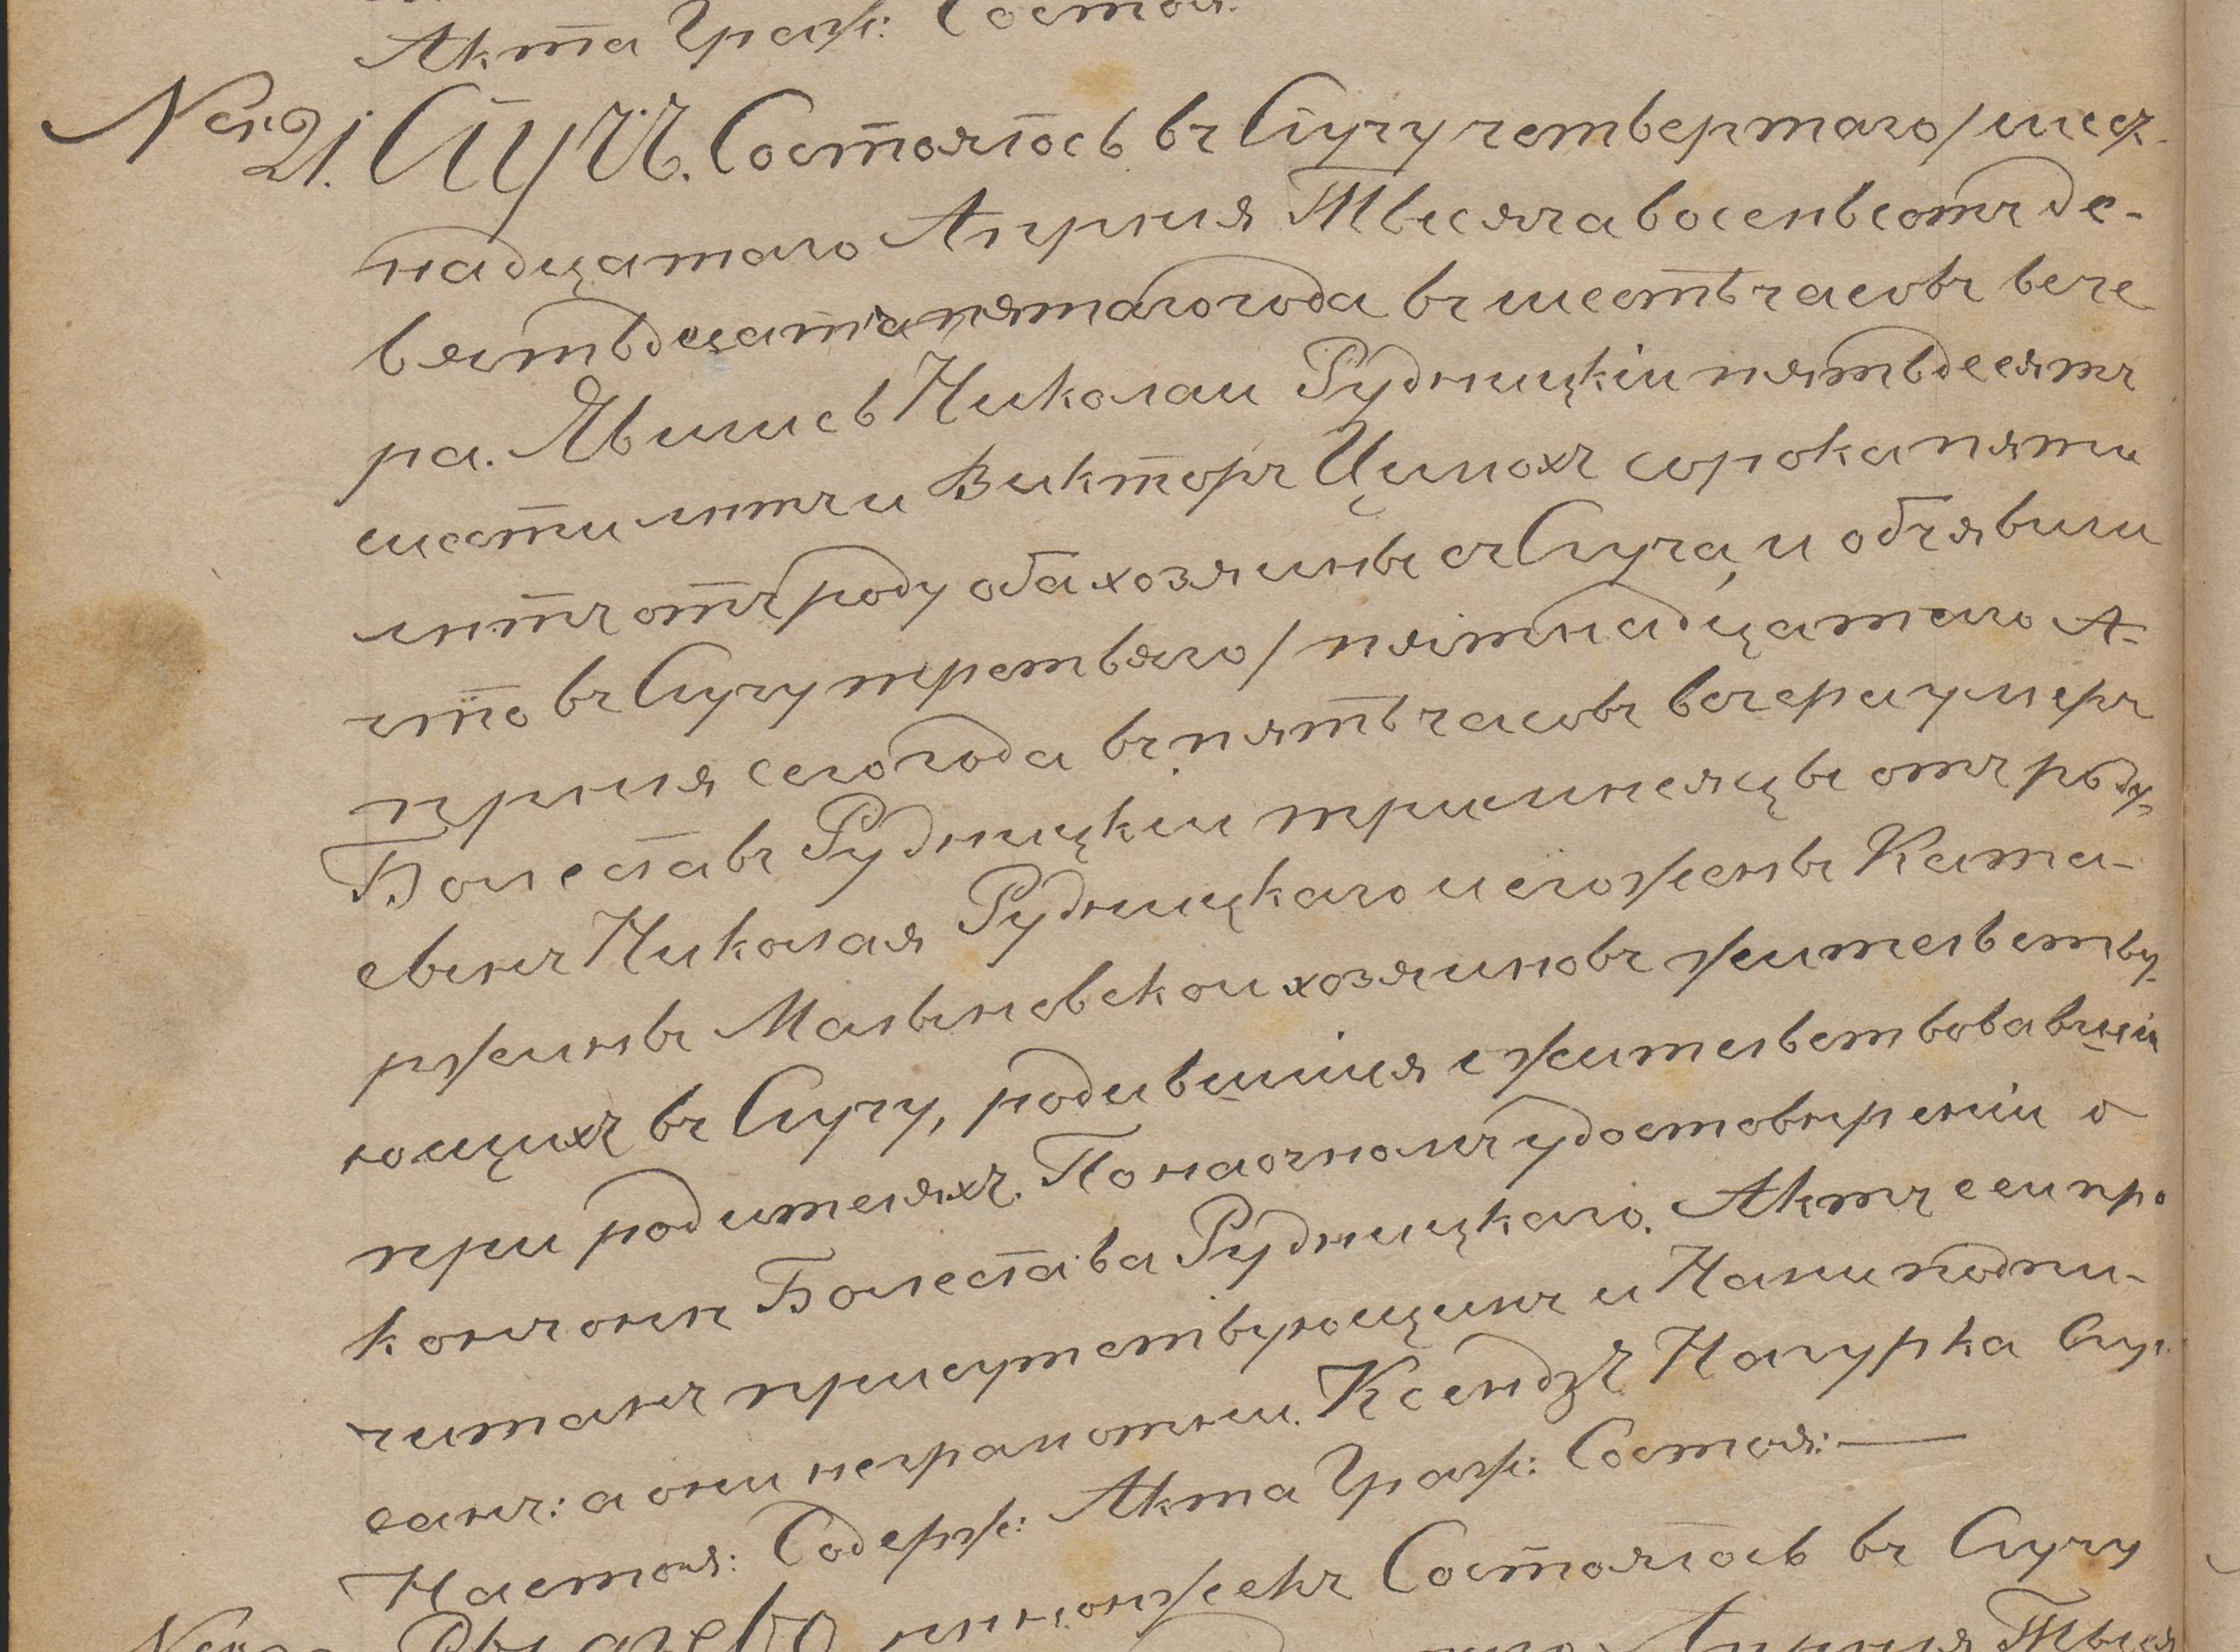 Акта Граж: Состоя:
№ 21. Случ. Состоялось въ Случу четвертаго/шест-
надцатаго Апрѣля Тысяча восемьсотъ де-
вятьдесятъ пятаго года въ шесть часовъ вече
ра. Явились Николай Рудницкій пятьдесятъ
шести лѣтъ и Викторъ Цимохъ сорока пяти
лѣтъ отъ роду оба хозяины съ Случа, и объявили
что въ Случу третьяго/пятнадцатаго А-
прѣля сего года въ пять часовъ вечера умеръ
Болеславъ Рудницкій три мѣсяцы отъ роду,
сынъ Николая Рудницкаго и его жены Ката-
ржины Малыновской хозяиновъ жительству-
ющихъ въ Случу, родившійся и жительствовавшій
при родителяхъ. По наочномъ удостовѣреніи о
кончинѣ Болеслава Рудницкаго. Актъ сей про
читанъ присутствующимъ и Нами подпи-
санъ: а они неграмотни. Ксендзъ Нагурка Слу:
Настоя: Содерж: Акта Граж: Состоя:—
Состоялось въ Случу